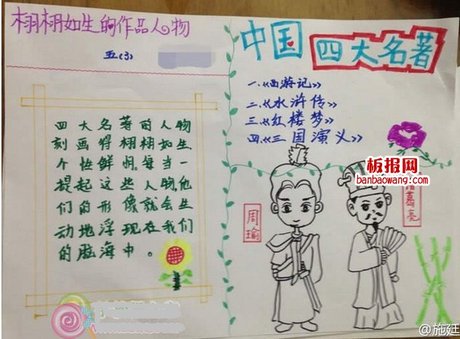 栩栩如生的作品人物
五(3)
四大名著的人物
刻画得栩栩如生
个性鲜明,每当一
提起这些人物他
们的形像就会生
动地浮现在我们
的脑海中。
中国四大名著
一.《西游记》
二.《水浒传》
三.《红楼梦》
四.《三国演义》
周瑜
葛亮
板报网
banbaowang.com
@施廷